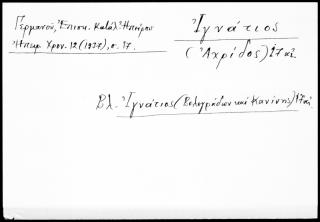 Γερμανοῦ, Ἐπισκ. Κατάλ. Ἠπείρου
Ἠπειρ. Χρον. 12 (1937), σ. 17.
Ἰγνάτιος
(Ἀχρίδος) 17 αἰ.
Βλ. Ἰγνάτιος (Βελογράδων καὶ Κανίνης) 17 αἰ.